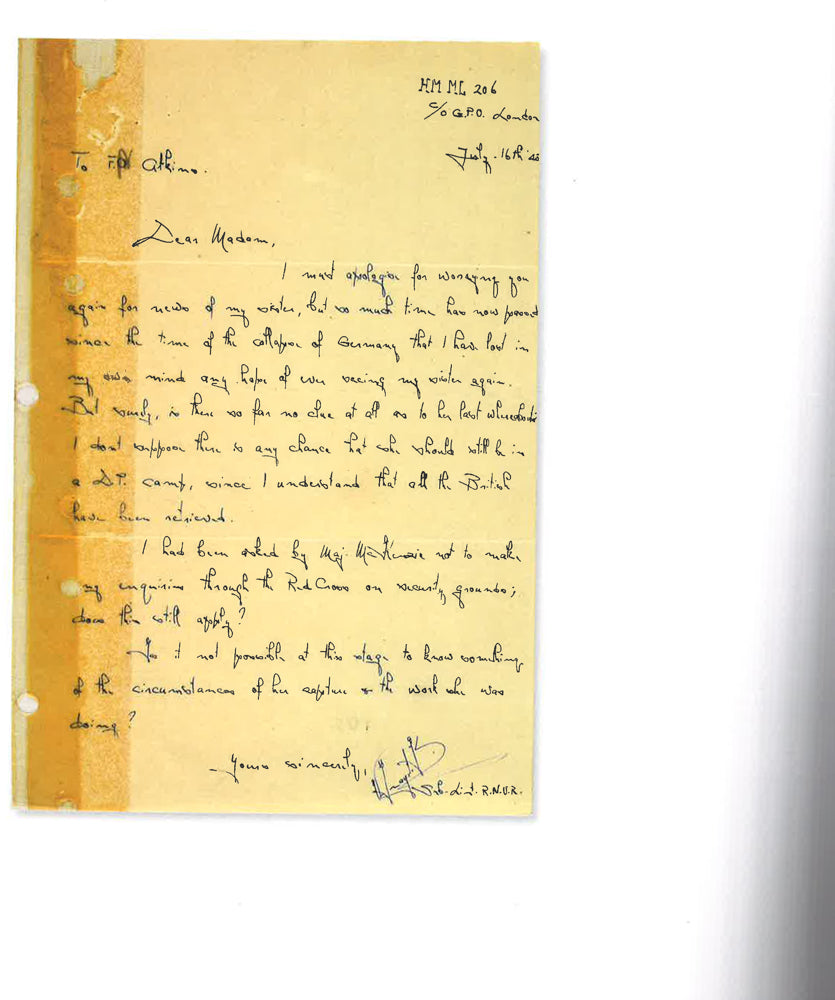 HM ML 206
c/o G.P.O. London
July. 16th 45
To F/O Atkins.
Dear Madam,
I must apologise for worrying you
again for news of my sister, but so much time has now passed
since the time of the collapse of Germany that I have lost in
my own mind any hope of ever seeing my sister again.
But surely, is there so far no clue at all as to her last whereabouts
I dont suppose there is any chance that she should still be in
a D.P. camp, since I understand that all the British
have been retrieved.
I had been asked by Maj. MacKenzie not to make
my enquiries through the Red Cross on security grounds;
does this still apply?
Is it not possible at this stage to know something
of the circumstances of her capture or the work she was
doing?
Yours sincerely,
Sub-Lit. R.N.V.R.